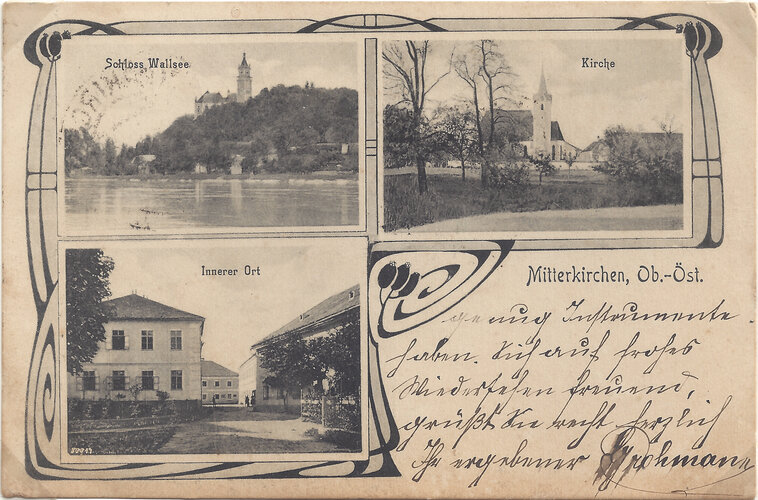 Schloss Wallsee
Kirche
Innerer Ort
Mitterkirchen, Ob.-Öst.
genug Instrumente
haben. Sich auf frohes
Wiedersehen freuend,
grüßt Sie recht herzlich
Ihr ergebener Grohmann